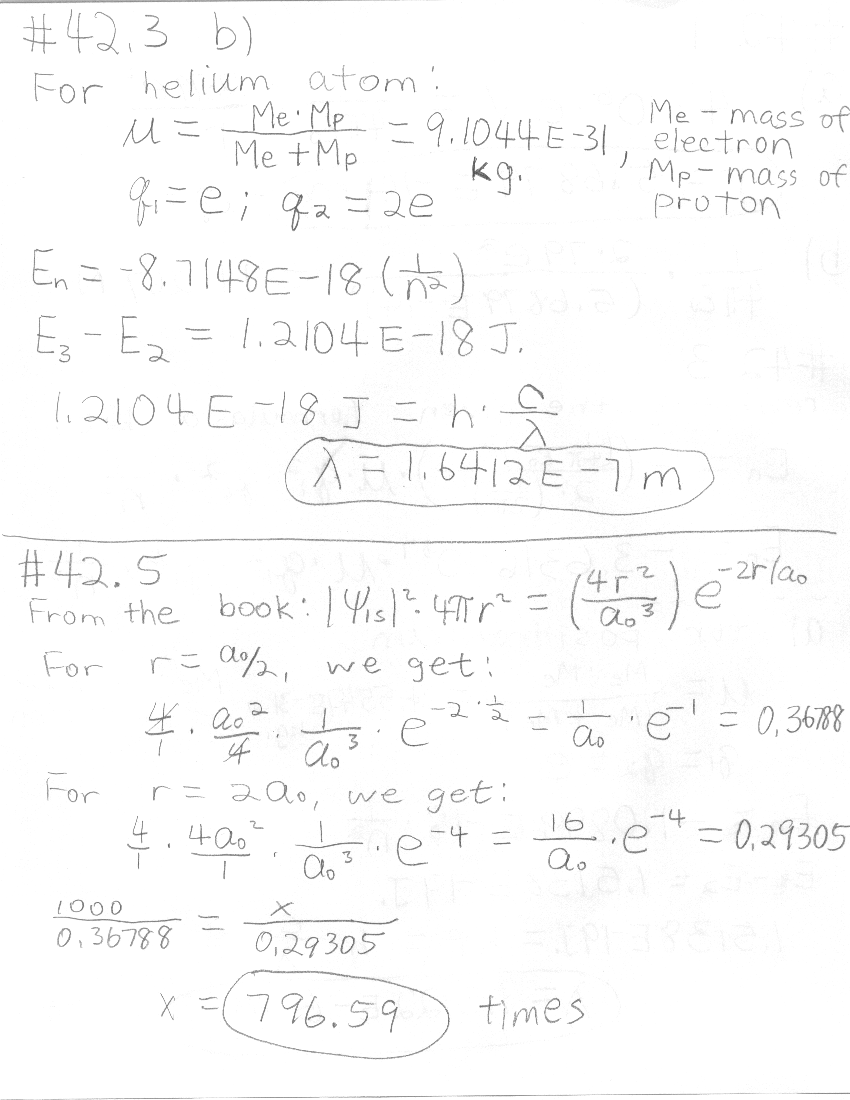 #42.3 b)
For helium atom:
μ = Me·Mp / Me + Mp = 9.1044E-31 kg, Me - mass of electron Mp - mass of proton
q₁ = e; q₂ = 2e
En = -8.7148E-18 (1/n²)
E₃ - E₂ = 1.2104E-18 J.
1.2104E-18 J = h · c/λ
λ = 1.6412E-7 m
#42.5
From the book: |Ψ1s|² · 4πr² = (4r²/a₀³) e^(-2r/a₀)
For r = a₀/2, we get:
4/1 · a₀²/4 · 1/a₀³ · e^(-2·1/2) = 1/a₀ · e^(-1) = 0,36788
For r = 2a₀, we get:
4/1 · 4a₀²/1 · 1/a₀³ · e^(-4) = 16/a₀ · e^(-4) = 0,29305
1000/0,36788 = x/0,29305
x = 796.59 times